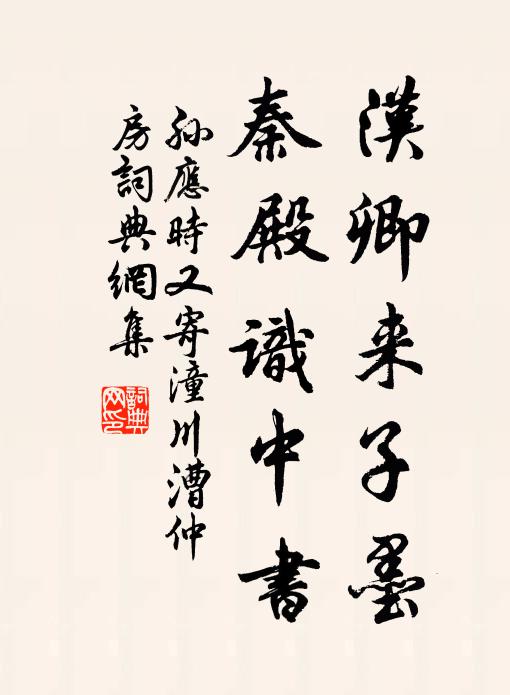 漢卿来子墨
秦殿識中書
孫應時又寄潼川漕仲
房詞典網集
詞典网印